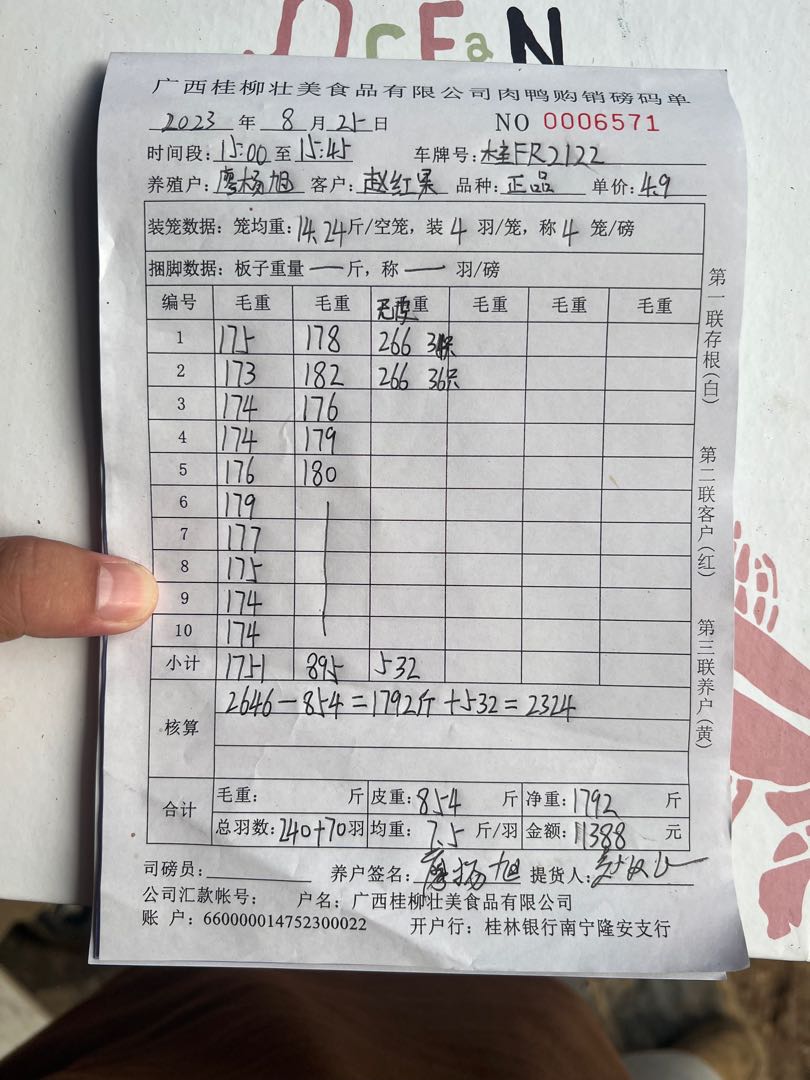 OCEaN
广西桂柳壮美食品有限公司肉鸭购销磅码单
2023 年 8 月 25 日 NO 0006571
时间段: 15:00 至 15:45 车牌号: 桂FR2122
养殖户: 廖杨旭 客户: 赵红果 品种: 正品 单价: 4.9
装笼数据: 笼均重: 14.24 斤/空笼, 装 4 羽/笼, 称 4 笼/磅
捆脚数据: 板子重量 — 斤, 称 — 羽/磅
编号 毛重 毛重 无皮重 毛重 毛重 毛重
1 175 178 266 34只
2 173 182 266 36只
3 174 176
4 174 179
5 176 180
6 179
7 177
8 175
9 174
10 174
小计 1751 895 532
核算 2646-854=1792斤+532=2324
合计 毛重: 斤 皮重: 854 斤 净重: 1792 斤
总羽数: 240+70 羽 均重: 7.5 斤/羽 金额: 11388 元
司磅员: 养户签名: 廖杨旭 提货人:
公司汇款帐号: 户名: 广西桂柳壮美食品有限公司
账 户: 660000014752300022 开户行: 桂林银行南宁隆安支行
第一联存根(白)
第二联客户(红)
第三联养户(黄)